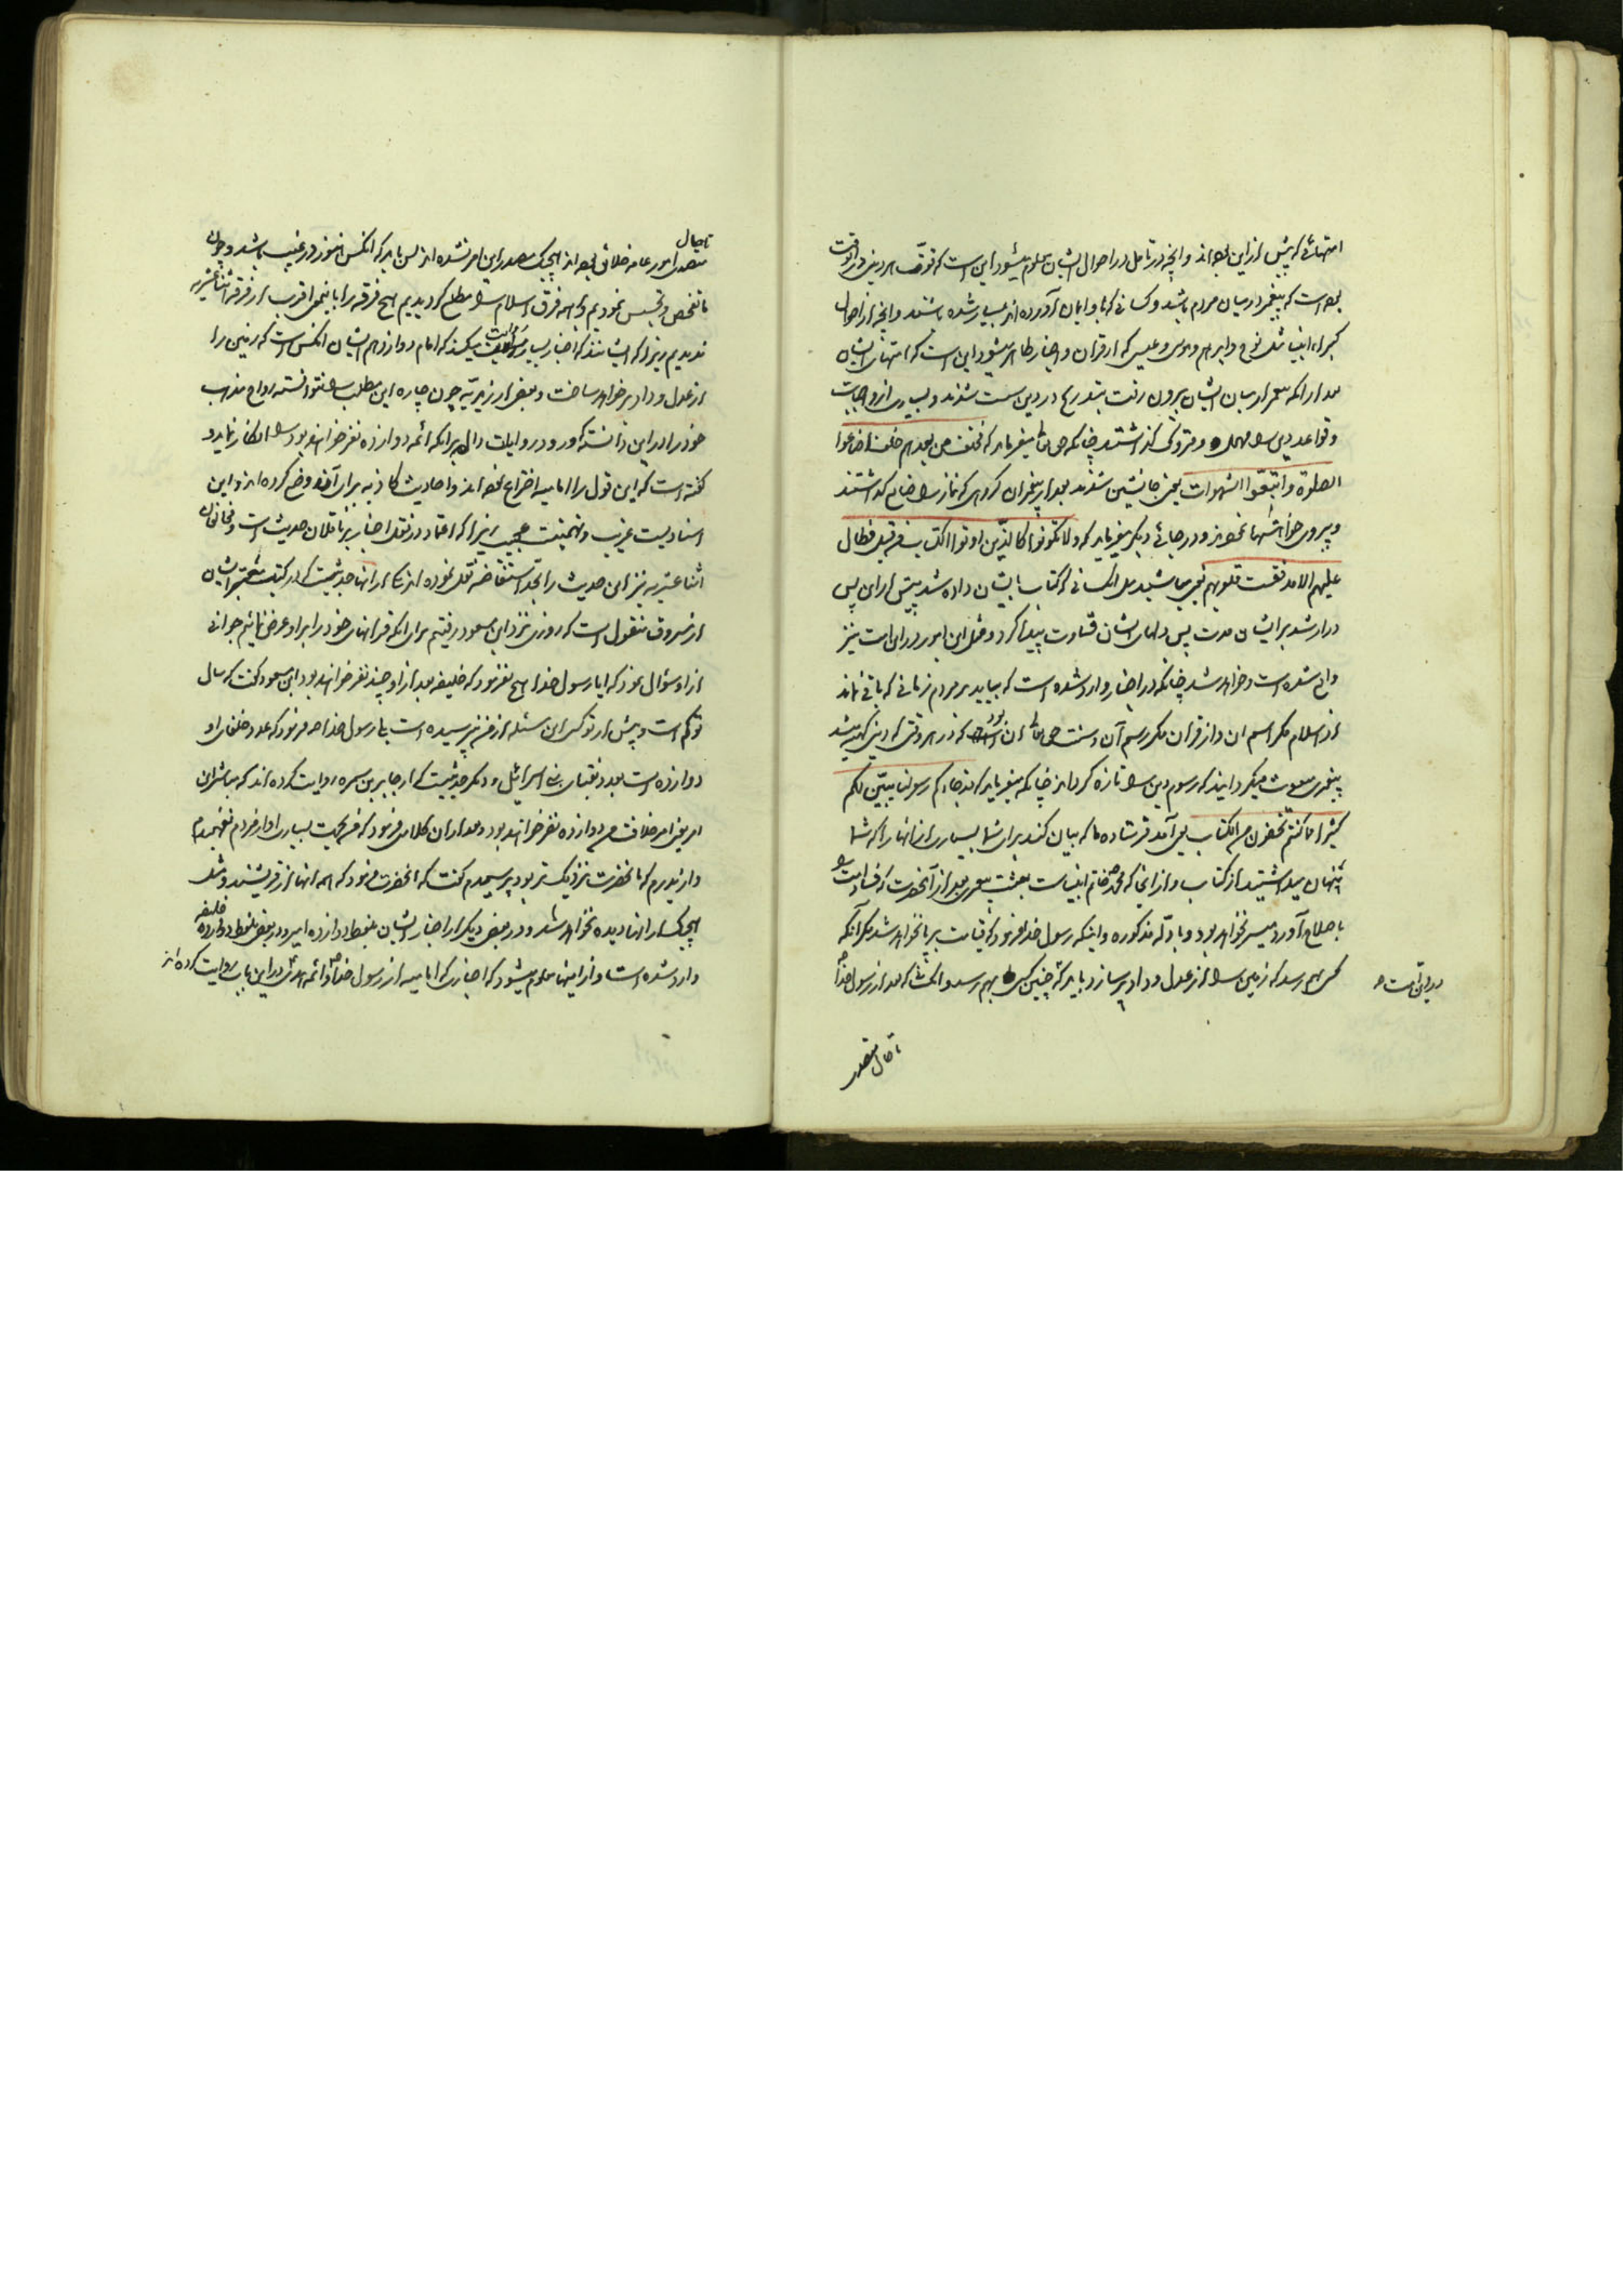 امتهائی که پیش از این بوده‌اند و آنچه در تامل در احوال ایشان معلوم میشود این است که قوت هر دینی در اوقت
بوده است که پیغمبر در میان مردم باشد و کسانی که باو ایمان آورده‌اند بسیار شده باشند و آنچه از احوال
کبراء انبیا مثل نوح و ابرهیم و موسی و عیسی که از قرآن و اخبار ظاهر میشود این است که امتهای ایشان
بعد از آنکه پیغمبر از میان ایشان بیرون رفت بتدریج در دین سست شدند و بسیاری از واجبات
و قواعد دین را مهمل و متروک گذاشتند چنانکه حق تعالی میفرماید که فخلف من بعدهم خلف اضاعوا
الصلوة و اتبعوا الشهوات یعنی جانشین شدند بعد از پیغمبران گروهی که نماز را ضایع گذاشتند
و پیروی خواهشها نمودند و در جائی دیگر میفرماید که ولا تکونوا کالذین اوتوا الکتاب من قبل فطال
علیهم الامد فقست قلوبهم یعنی مباشید مثل آنکسانی که کتاب بایشان داده شد پیش از این پس
دراز شد بر ایشان مدت پس دلهای ایشان قساوت پیدا کرد و مثل این امور در این امت نیز
واقع شده است و خواهد شد چنانکه در اخبار وارد شده است که بیاید بر مردم زمانی که باقی نماند
از اسلام مگر اسم آن و از قرآن مگر رسم آن و سنت حق تعالی آن بود که در هر وقتی که دینی کهنه میشد
پیغمبری مبعوث میگردانید که رسوم دین را تازه گرداند چنانکه میفرماید که قد جاءکم رسولنا یبین لکم
کثیرا مما کنتم تخفون من الکتاب یعنی آمد فرستاده ما که بیان کند برای شما بسیاری از آنها را که شما
پنهان میداشتید از کتاب و از آنجا که محمد خاتم انبیاست بعثت پیغمبری بعد از آنحضرت که فساد امت را
باصلاح آورد میسر نخواهد بود و بادله مذکوره و اینکه رسول خدا فرمود که قیامت برپا نخواهد شد مگر آنکه
کسی بهم رسد که زمین را از عدل و داد پر سازد باید که چنین کسی بهم رسد و آنکس شاید که بعد از رسول خدا
در این امت
تا حال متصدی
تا حال
متصدی امور عامه خلائق بوده‌اند هیچیک مصدر این امر نشده‌اند پس باید که آنکس هنوز در غیب باشد و چون
ما تفحص و تجسس نمودیم و بر همه فرق اسلام مطلع گردیدیم هیچ فرقه را باین معنی اقرب از فرقه اثناعشریه
ندیدیم زیرا که ایشانند که اخبار بسیار روایت میکنند که امام دوازدهم ایشان آنکس است که زمین را
از عدل و داد پر خواهد ساخت و بعضی از زیدیه چون چاره این مطلب را نتوانسته رواج مذهب
خود را در این دانسته که ورود روایات دال بر آنکه ائمه دوازده نفر خواهند بود را انکار نماید و
گفته است که این قول را امامیه اختراع نموده‌اند و احادیث کاذبه برای آن وضع کرده‌اند و این
اسنادیست غریب و تهمتیست عجیب زیرا که اعتماد در نقل اخبار بر ناقلان حدیث است و مخالفان
اثناعشریه نیز این حدیث را بحد استفاضه نقل نموده‌اند یکی از آنها حدیثیست که در کتب معتبره ایشان
از مسروق منقول است که روزی نزد ابن مسعود رفتیم برای آنکه قرآنهای خود را بر او عرض نمائیم جوانی
از او سؤال نمود که آیا رسول خدا هیچ نفرمود که خلیفه بعد از او چند نفر خواهند بود ابن مسعود گفت که سال
تو کم است و پیش از تو کسی این مسئله از من نپرسیده است بلی رسول خدا ص فرمود که عدد خلفای او
دوازده است بعدد نقبای بنی اسرائیل و دیگر حدیثیست که از جابر بن سمره روایت کرده‌اند که مباشران
امر یعنی امر خلافت من دوازده نفر خواهند بود و بعد از آن کلامی فرمود که من بجهت بسیاری آواز مردم نفهمیدم
و از پدرم که بآنحضرت نزدیکتر بود پرسیدم گفت که آنحضرت فرمود که همه آنها از قریشند و مثل
هیچیک از آنها دیده نخواهد شد و در بعضی دیگر از اخبار ایشان بلفظ دوازده امیر و در بعضی بلفظ دوازده خلیفه
وارد شده است و از اینها معلوم میشود که اخباری که امامیه از رسول خدا و ائمه هدی در این باب روایت کرده‌اند